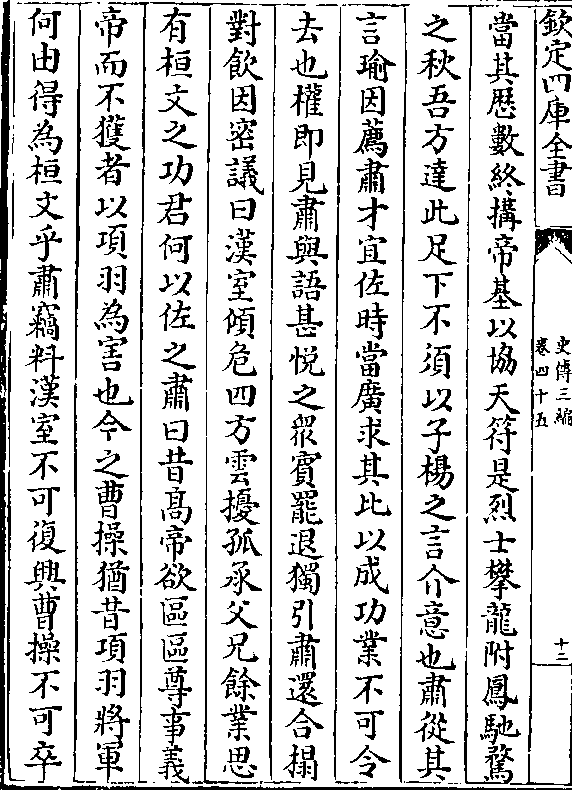 欽定四庫全書
史傳三編
卷四十五
十三
當其歴數終搆帝基以協天符是烈士攀龍附鳳馳騖
之秋吾方達此足下不須以子楊之言介意也肅從其
言瑜因薦肅才宜佐時當廣求其比以成功業不可令
去也權即見肅與語甚悦之衆賓罷退獨引肅還合榻
對飲因密議曰漢室傾危四方雲擾孤承父兄餘業思
有桓文之功君何以佐之肅曰昔髙帝欲區區尊事義
帝而不獲者以項羽為害也今之曹操猶昔項羽將軍
何由得為桓文乎肅竊料漢室不可復興曹操不可卒